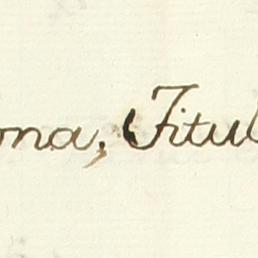 ona, Titul